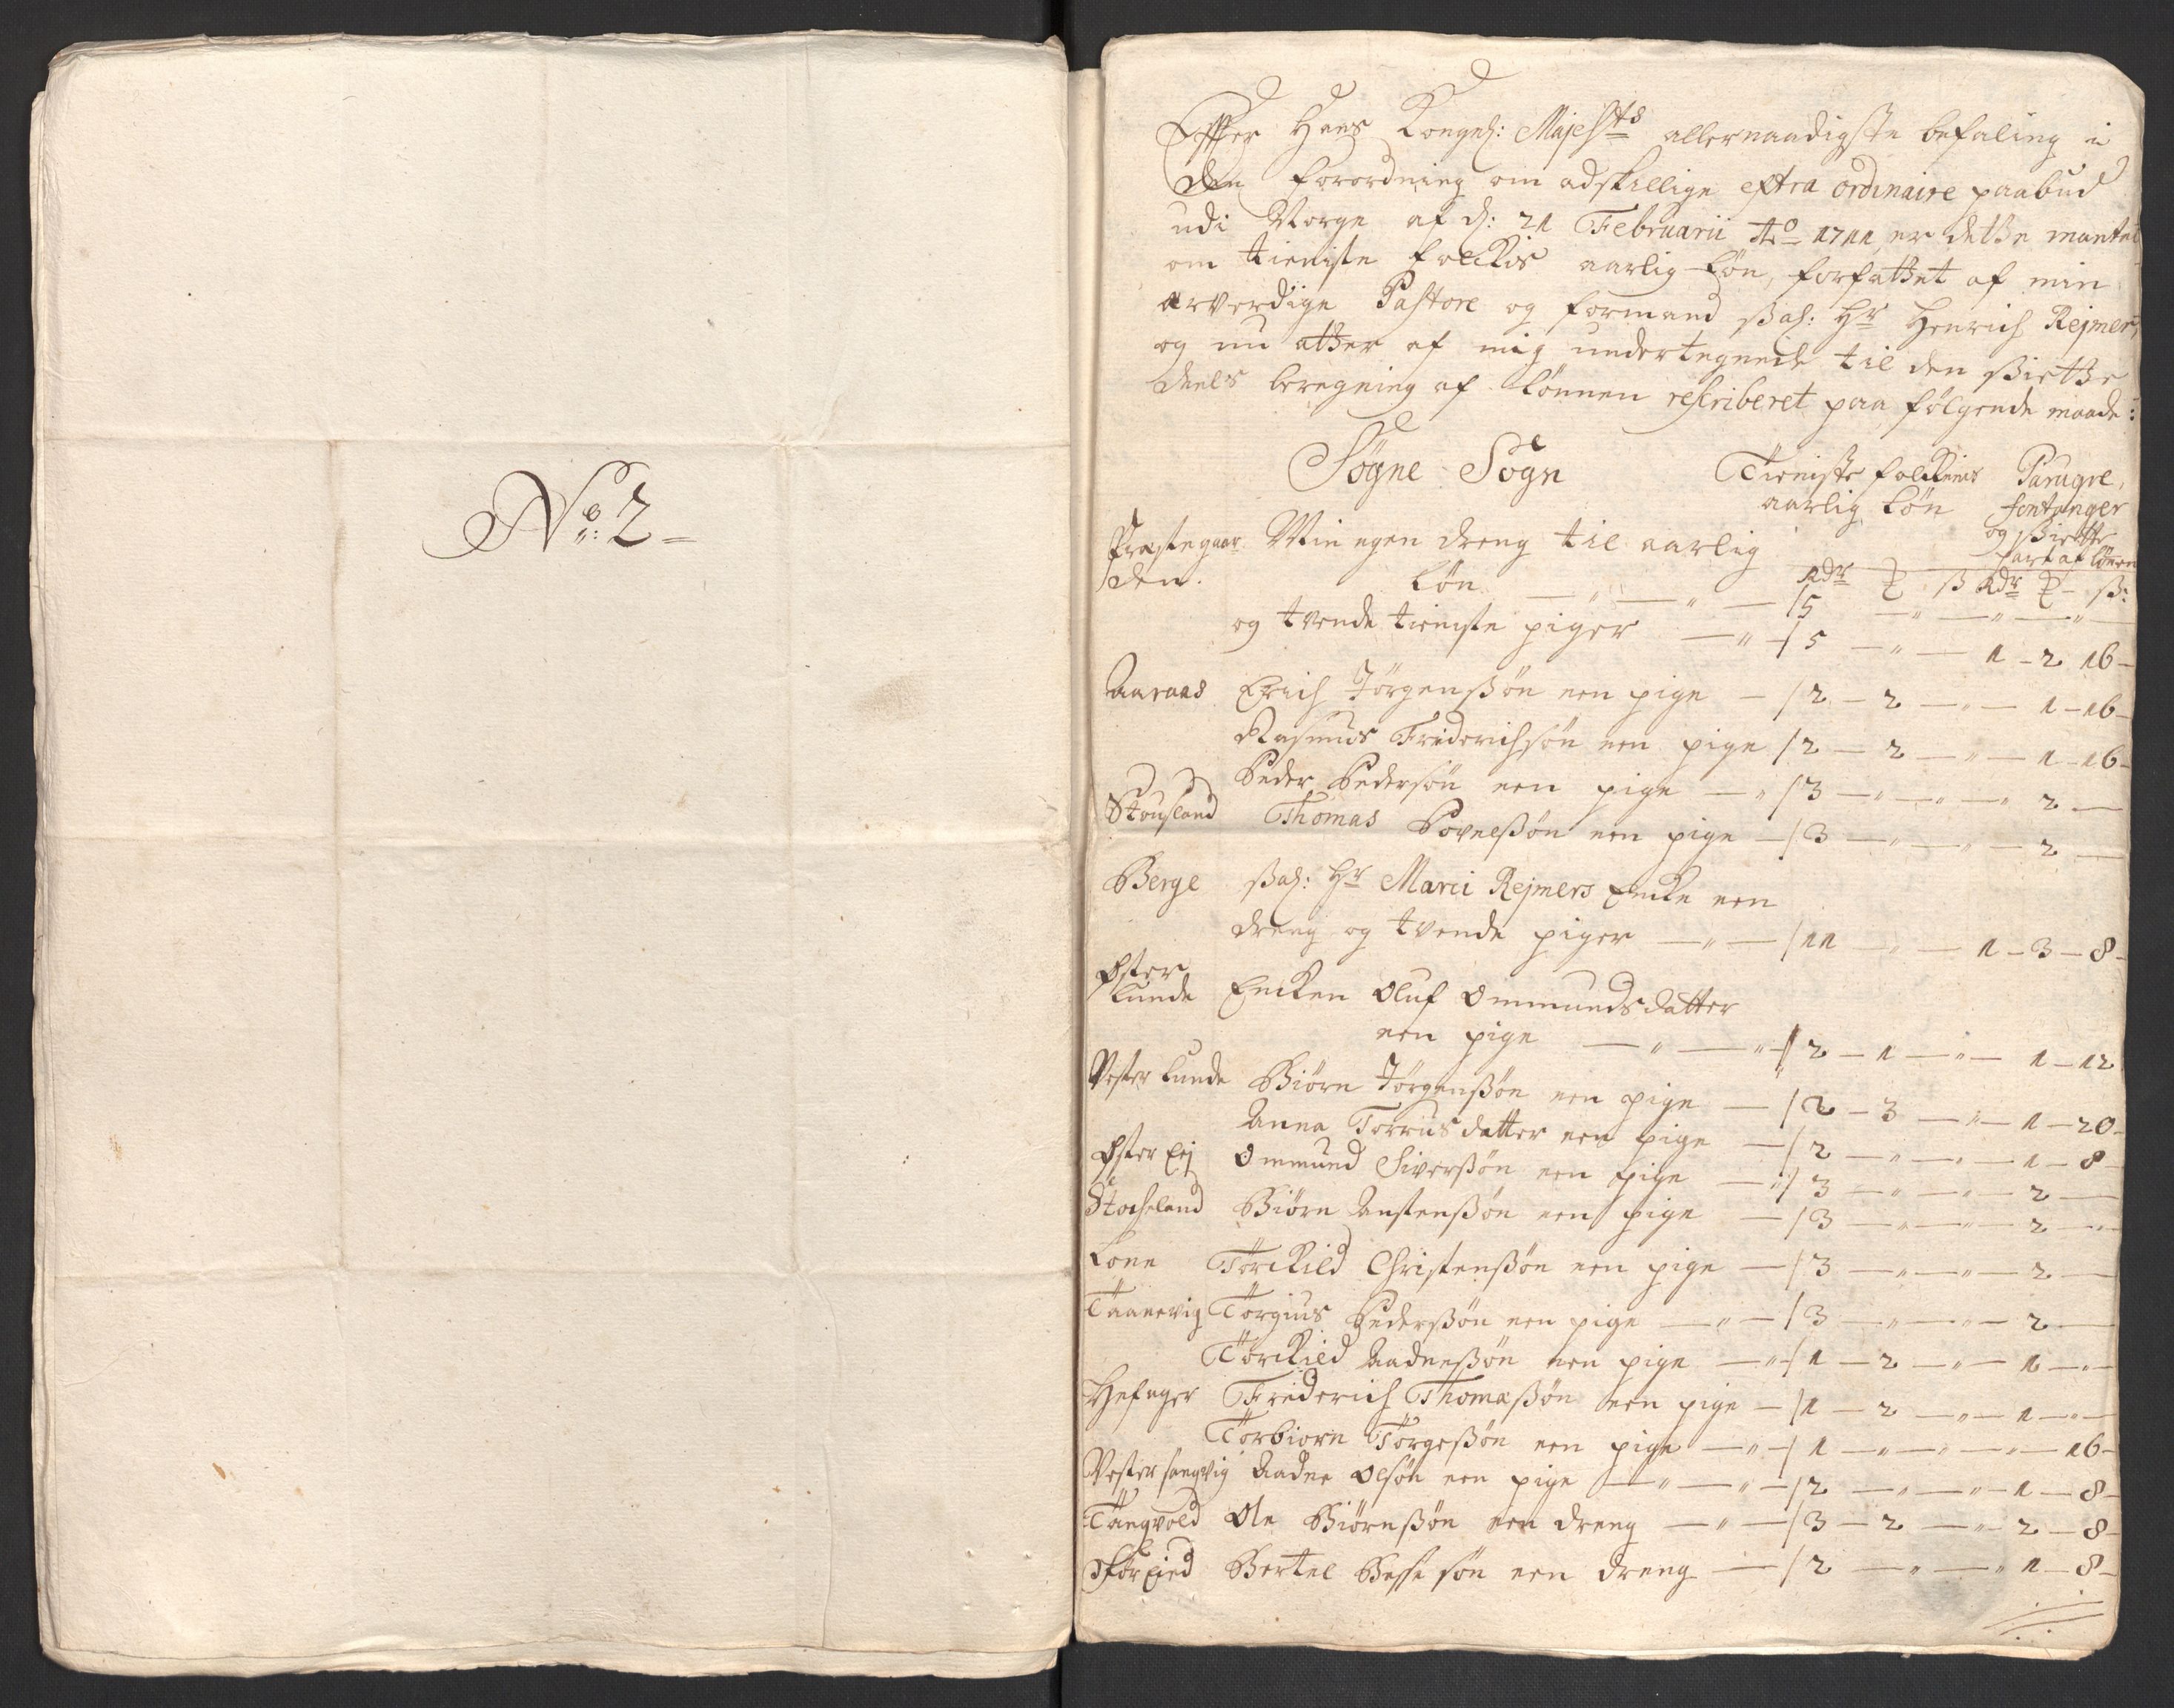 No: 2
Effter Hans Kongel: Majestts allernaadigste befaling i
den forordning om adskillige extra ordinaire paabud
udi Norge af d: 21 Februarii Ao 1711 er dette mantal
om tieniste folckis aarlig løn, forfattet af min
ærverdige Pastore og formand Sal: Hr Henrich Rejmer,
og nu atter af mig undertegnede til den Siette
deels beregning af lønnen rescriberet paa følgende maade:
Søgne Sogn
Tieniste folckenes Paruqve,
aarlig løn fontanger
og Siette
part af lønen
Rdr ß Rdr ß:
Præstegaar Min egen dreng til aarlig
den. løn 5
og tvende tieniste piger 5 1 - 2 16
Aaraas Erich Jörgensön een pige 2 - 2 1 - 16
Rasmus Friderichsön een pige 2 - 2 1 - 16
Peder Pedersön een pige 3 2
Stousland Thomas Povelsön een pige 3 2
Berge Sal: Hr Marci Rejmers Encke een
dreng og tvende piger 11 1 - 3 - 8
Øster
Lunde Encken Oluf Ommundsdatter
een pige 2 - 1 1 - 12
Vester Lunde Biörn Jörgensön een pige 2 - 3 1 - 20
Anna Torriusdatter een pige 2 1 - 8
Øster Eej Ommund Siversön een pige 3 2
Stocheland Biörn Anstensön een pige 3 2
Lone Torckild Christensön een pige 3 2
Taanevig Torgius Pedersön een pige 3 2
Torckild Aadnesön een pige 1 - 2 1
Hefager Friderich Thomasön een pige 1 - 2 1
Torbiorn Törgesön een pige 1 16
Vester Langvig Aadne Olsön een pige 2 1 - 8
Tangvold Ole Biörnsön een dreng 3 - 2 2 - 8
Bertel sön een dreng 2 1 - 8